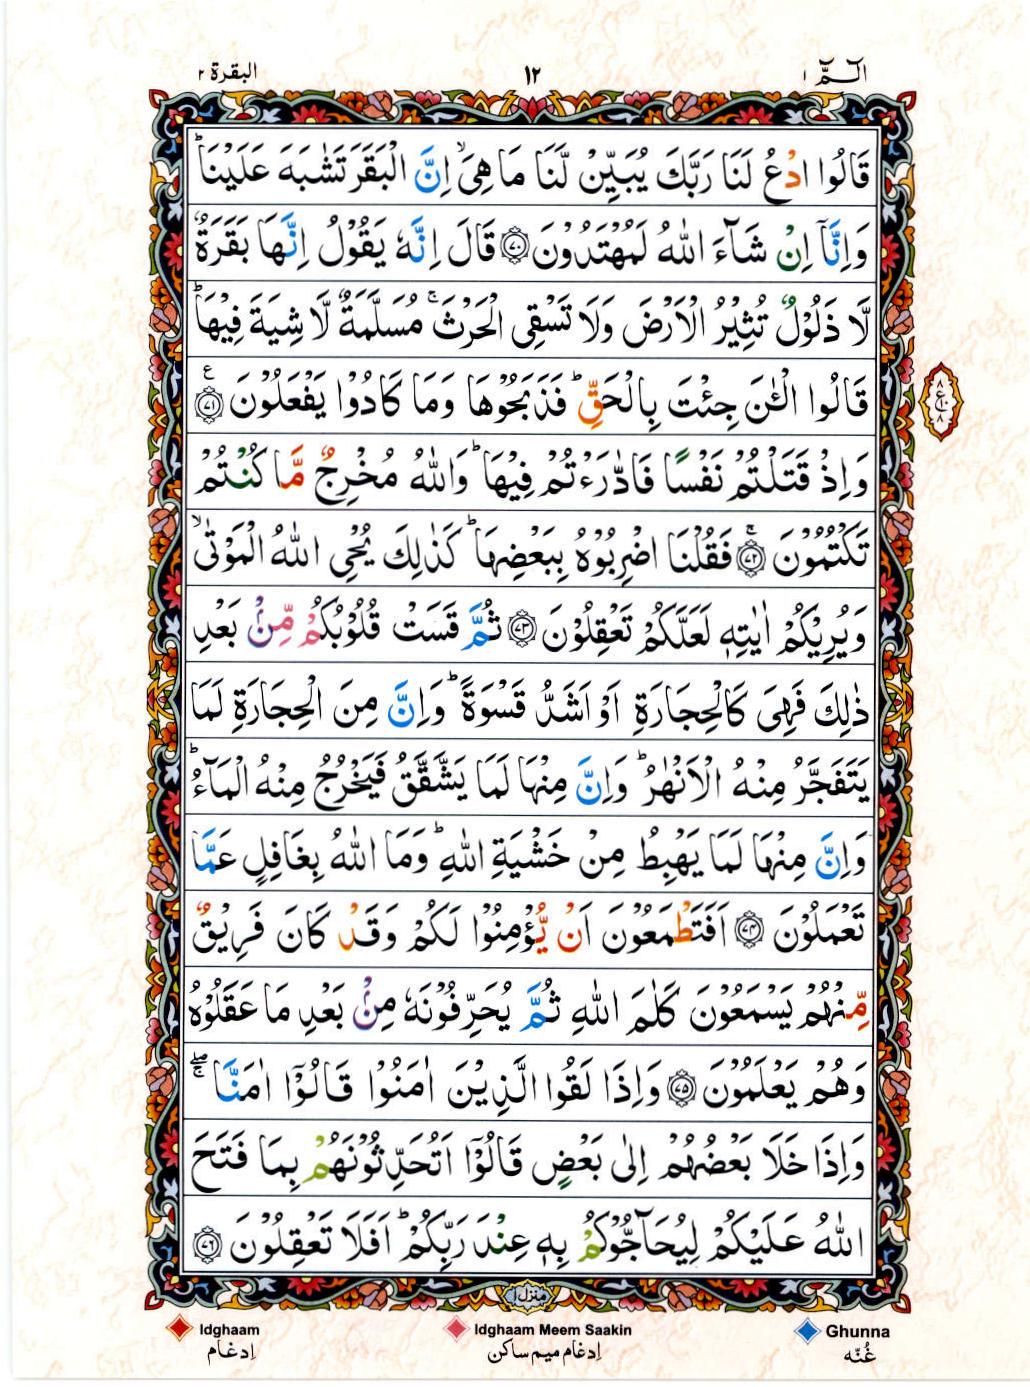 الٓـمّٓ ١ ١٢ البقرة ٢
قَالُوا ادْعُ لَنَا رَبَّكَ يُبَيِّنْ لَّنَا مَا هِيَ ۙ اِنَّ الْبَقَرَ تَشٰبَهَ عَلَيْنَا ؕ
وَاِنَّاۤ اِنْ شَآءَ اللّٰهُ لَمُهْتَدُوْنَ ﴿۷۰﴾ قَالَ اِنَّهٗ يَقُوْلُ اِنَّهَا بَقَرَةٌ
لَّا ذَلُوْلٌ تُثِيْرُ الْاَرْضَ وَلَا تَسْقِي الْحَرْثَ ۚ مُسَلَّمَةٌ لَّا شِيَةَ فِيْهَا ؕ
قَالُوا الْـٰٔنَ جِئْتَ بِالْحَقِّ ؕ فَذَبَحُوْهَا وَمَا كَادُوْا يَفْعَلُوْنَ ﴿۷۱﴾ ع
٨
ع ١٠
٨
وَاِذْ قَتَلْتُمْ نَفْسًا فَادّٰرَءْتُمْ فِيْهَا ؕ وَاللّٰهُ مُخْرِجٌ مَّا كُنْتُمْ
تَكْتُمُوْنَ ۚ﴿۷۲﴾ فَقُلْنَا اضْرِبُوْهُ بِبَعْضِهَا ؕ كَذٰلِكَ يُحْيِ اللّٰهُ الْمَوْتٰى ۙ
وَيُرِيْكُمْ اٰيٰتِهٖ لَعَلَّكُمْ تَعْقِلُوْنَ ﴿۷۳﴾ ثُمَّ قَسَتْ قُلُوْبُكُمْ مِّنْۢ بَعْدِ
ذٰلِكَ فَهِيَ كَالْحِجَارَةِ اَوْ اَشَدُّ قَسْوَةً ؕ وَاِنَّ مِنَ الْحِجَارَةِ لَمَا
يَتَفَجَّرُ مِنْهُ الْاَنْهٰرُ ؕ وَاِنَّ مِنْهَا لَمَا يَشَّقَّقُ فَيَخْرُجُ مِنْهُ الْمَآءُ ؕ
وَاِنَّ مِنْهَا لَمَا يَهْبِطُ مِنْ خَشْيَةِ اللّٰهِ ؕ وَمَا اللّٰهُ بِغَافِلٍ عَمَّا
تَعْمَلُوْنَ ﴿۷۴﴾ اَفَتَطْمَعُوْنَ اَنْ يُّؤْمِنُوْا لَكُمْ وَقَدْ كَانَ فَرِيْقٌ
مِّنْهُمْ يَسْمَعُوْنَ كَلٰمَ اللّٰهِ ثُمَّ يُحَرِّفُوْنَهٗ مِنْۢ بَعْدِ مَا عَقَلُوْهُ
وَهُمْ يَعْلَمُوْنَ ﴿۷۵﴾ وَاِذَا لَقُوا الَّذِيْنَ اٰمَنُوْا قَالُوْۤا اٰمَنَّا ۖۚ
وَاِذَا خَلَا بَعْضُهُمْ اِلٰى بَعْضٍ قَالُوْۤا اَتُحَدِّثُوْنَهُمْ بِمَا فَتَحَ
اللّٰهُ عَلَيْكُمْ لِيُحَآجُّوْكُمْ بِهٖ عِنْدَ رَبِّكُمْ ؕ اَفَلَا تَعْقِلُوْنَ ﴿۷۶﴾
منزل ١
Idghaam Idghaam Meem Saakin Ghunna
اِدغَام اِدغَام میم ساکن غُنّه